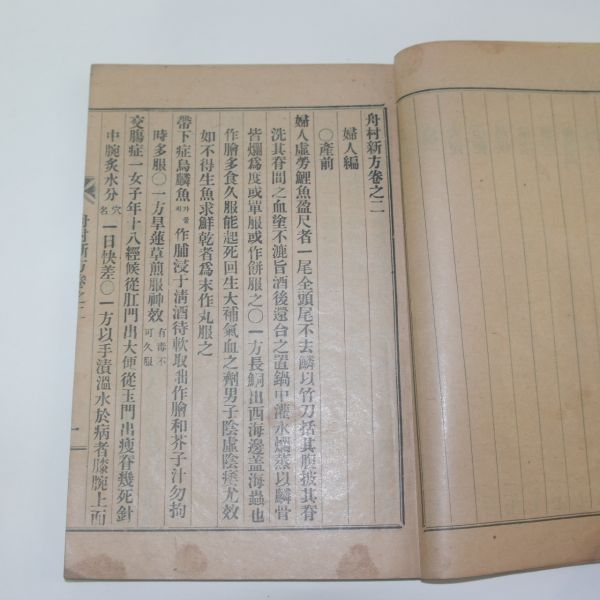 舟村新方卷之二
婦人編
○產前
婦人虛勞鯉魚盈尺者一尾全頭尾不去鱗以竹刀括其腹拔其脊
洗其脊間之血塗不漉旨酒後還合之置鍋中灌水爛蒸以鱗骨
皆爛爲度或單服或作餠服之○一方長鮦出西海邊盖海蟲也
作膾多食久服能起死回生大補氣血之劑男子陰虛陰痿尤效
如不得生魚求鮮乾者爲末作丸服之
帶下症烏鱗魚가물치作脯浸于淸酒待軟取拙作膾和芥子汁勿拘
時多服○一方旱蓮草煎服神效有毒不可久服
交腸症一女子年十八經候從肛門出大便從玉門出瘦脊幾死針
中腕炙水分穴名一日快差○一方以手漬溫水於病者膝腕上而
舟村新方卷之二
一